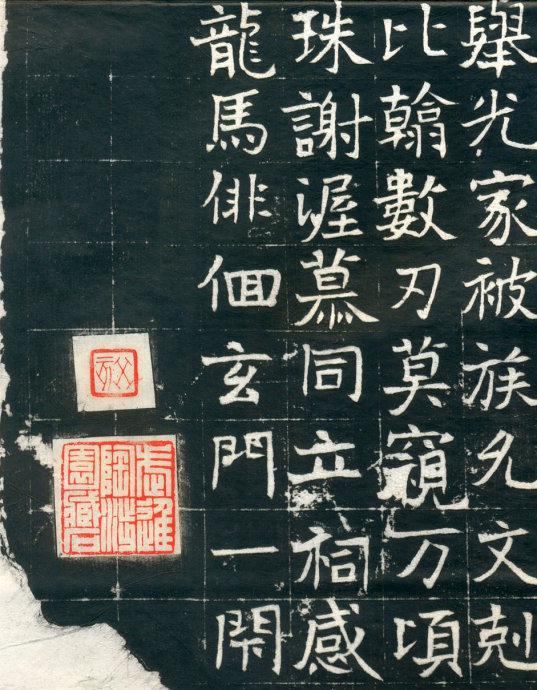 舉光家被族允文剋
比翰數刃莫窺万頃
珠謝渥慕同立祠感
龍馬俳佪玄門一閇